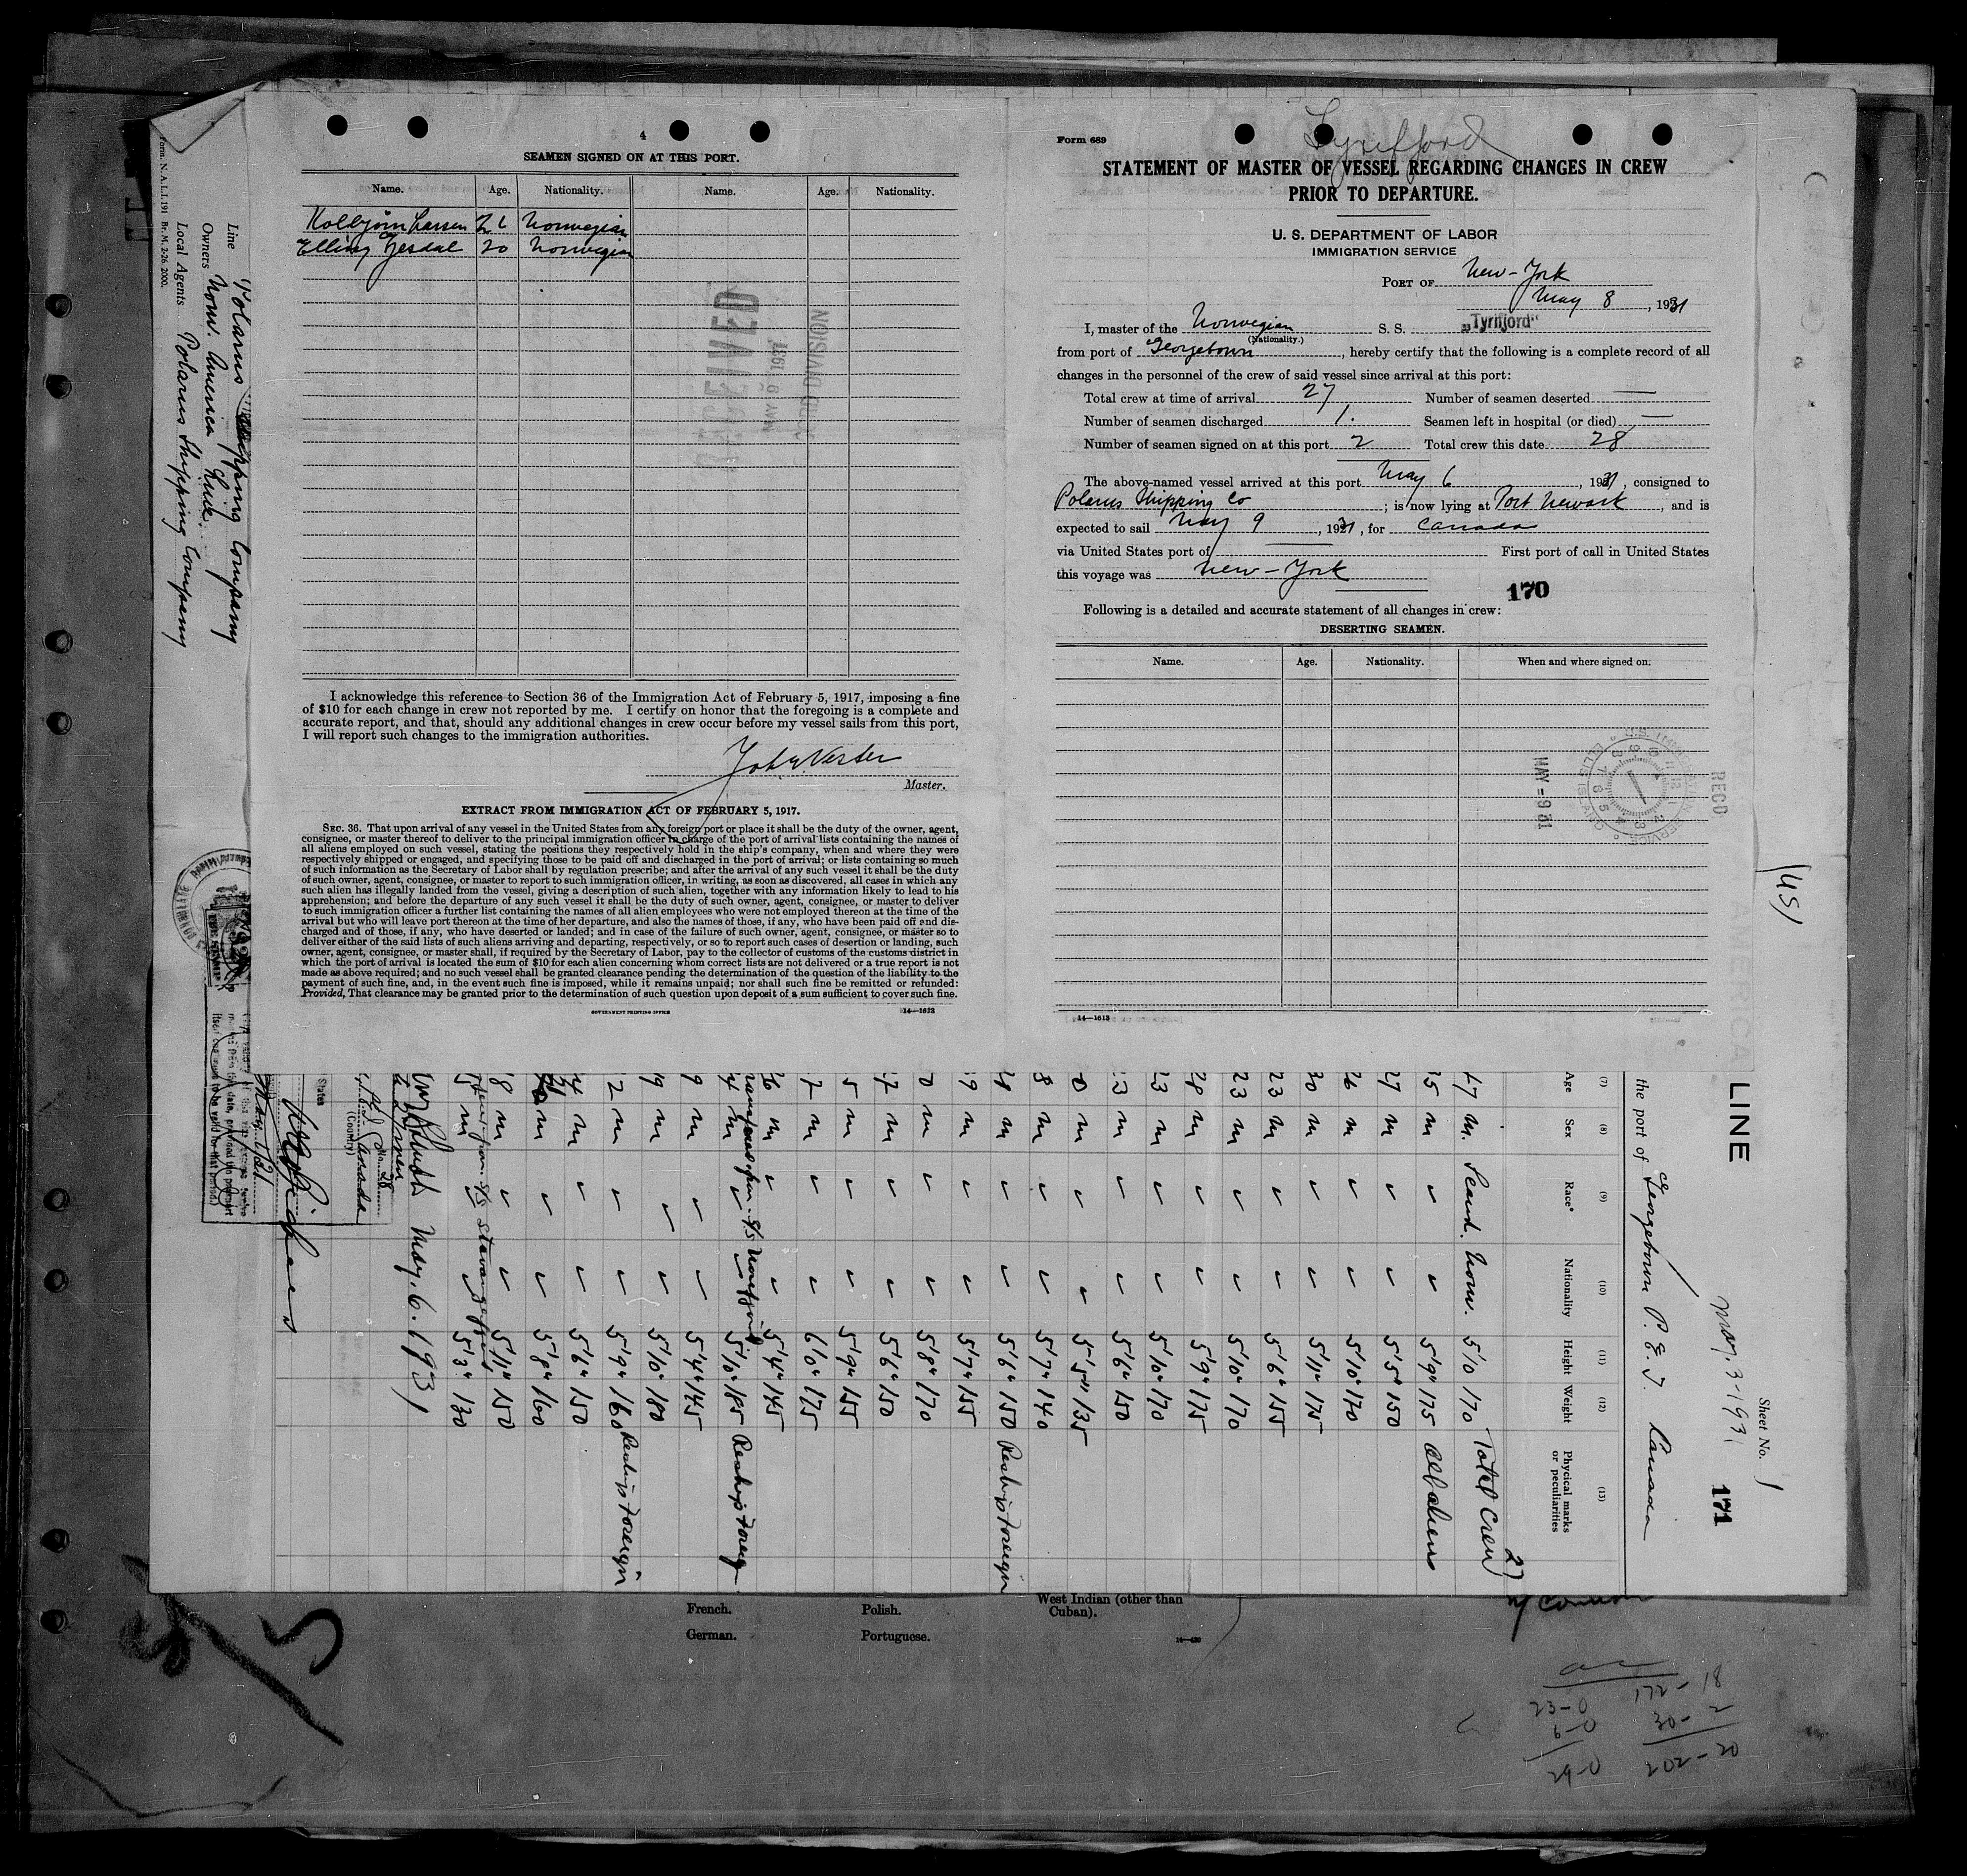 4
SEAMEN SIGNED ON AT THIS PORT.
Name. Age. Nationality. Name. Age. Nationality.
Kolbjörn Larsen 26 Norwegian
Elling Gjesdal 20 Norwegian
RECEIVED
MAY 9 1931
DIVISION
I acknowledge this reference to Section 36 of the Immigration Act of February 5, 1917, imposing a fine
of $10 for each change in crew not reported by me. I certify on honor that the foregoing is a complete and
accurate report, and that, should any additional changes in crew occur before my vessel sails from this port,
I will report such changes to the immigration authorities.
Master.
EXTRACT FROM IMMIGRATION ACT OF FEBRUARY 5, 1917.
SEC. 36. That upon arrival of any vessel in the United States from any foreign port or place it shall be the duty of the owner, agent,
consignee, or master thereof to deliver to the principal immigration officer in charge of the port of arrival lists containing the names of
all aliens employed on such vessel, stating the positions they respectively hold in the ship's company, when and where they were
respectively shipped or engaged, and specifying those to be paid off and discharged in the port of arrival; or lists containing so much
of such information as the Secretary of Labor shall by regulation prescribe; and after the arrival of any such vessel it shall be the duty
of such owner, agent, consignee, or master to report to such immigration officer, in writing, as soon as discovered, all cases in which any
such alien has illegally landed from the vessel, giving a description of such alien, together with any information likely to lead to his
apprehension; and before the departure of any such vessel it shall be the duty of such owner, agent, consignee, or master to deliver
to such immigration officer a further list containing the names of all alien employees who were not employed thereon at the time of the
arrival but who will leave port thereon at the time of her departure, and also the names of those, if any, who have been paid off and dis-
charged and of those, if any, who have deserted or landed; and in case of the failure of such owner, agent, consignee, or master so to
deliver either of the said lists of such aliens arriving and departing, respectively, or so to report such cases of desertion or landing, such
owner, agent, consignee, or master shall, if required by the Secretary of Labor, pay to the collector of customs of the customs district in
which the port of arrival is located the sum of $10 for each alien concerning whom correct lists are not delivered or a true report is not
made as above required; and no such vessel shall be granted clearance pending the determination of the question of the liability to the
payment of such fine, and, in the event such fine is imposed, while it remains unpaid; nor shall such fine be remitted or refunded:
Provided, That clearance may be granted prior to the determination of such question upon deposit of a sum sufficient to cover such fine.
GOVERNMENT PRINTING OFFICE 14—1613
Form 689
Tyrifjord
STATEMENT OF MASTER OF VESSEL REGARDING CHANGES IN CREW
PRIOR TO DEPARTURE.
U. S. DEPARTMENT OF LABOR
IMMIGRATION SERVICE
PORT OF New-York
May 8, 1931
I, master of the Norwegian S. S. „Tyrifjord"
(Nationality.)
from port of Georgetown, hereby certify that the following is a complete record of all
changes in the personnel of the crew of said vessel since arrival at this port:
Total crew at time of arrival 27 Number of seamen deserted —
Number of seamen discharged 1. Seamen left in hospital (or died) —
Number of seamen signed on at this port 2 Total crew this date 28
The above-named vessel arrived at this port May 6, 1931, consigned to
Polarus Shipping Co; is now lying at Port Newark, and is
expected to sail May 9, 1931, for Canada
via United States port of — First port of call in United States
this voyage was New-York
170
Following is a detailed and accurate statement of all changes in crew:
DESERTING SEAMEN.
Name. Age. Nationality. When and where signed on.
RECD
MAY -9 31
14—1613
Form. N.A.L.I. 191 Br. M. 2-26. 2000.
Line Polarus Shipping Company
Owners Norw. America Line.
Local Agents Polarus Shipping Company
LINE
Sheet No. 1
May. 3-1931
171
the port of Georgetown P. E. I. Canada
(7) (8) (9) (10) (11) (12) (13)
Age Sex Race* Nationality Height Weight Physical marks or peculiarities
47 M. Scand. Norw. 5'10 170 Total Crew 27
35 m 5'9" 175 All aliens
27 m 5'5" 150
26 m 5'10" 170
30 m 5'11" 175
23 m 5'6" 155
23 m 5'10" 170
28 m 5'9" 175
23 m 5'10" 170
m 5'6" 150
m 5'5" 135
m 5'7" 140
m 5'6" 150 Reship Foreign
m 5'7" 155
m 5'8" 170
m 5'6" 150
m 5'9" 155
m 6'0" 175
m 5'4" 145
m 5'10" 185 Reship Foreign
m 5'4" 145
m 5'10" 180
m 5'9" 160 Reship Foreign
m 5'6" 150
m 5'8" 160
m 5'11" 150
m 5'3" 130
May. 6. 1931
Canada
(Country)
States
1451
French. Polish. West Indian (other than
Cuban).
German. Portuguese.
5
23-0 172-18
6-0 30-2
29-0 202-20